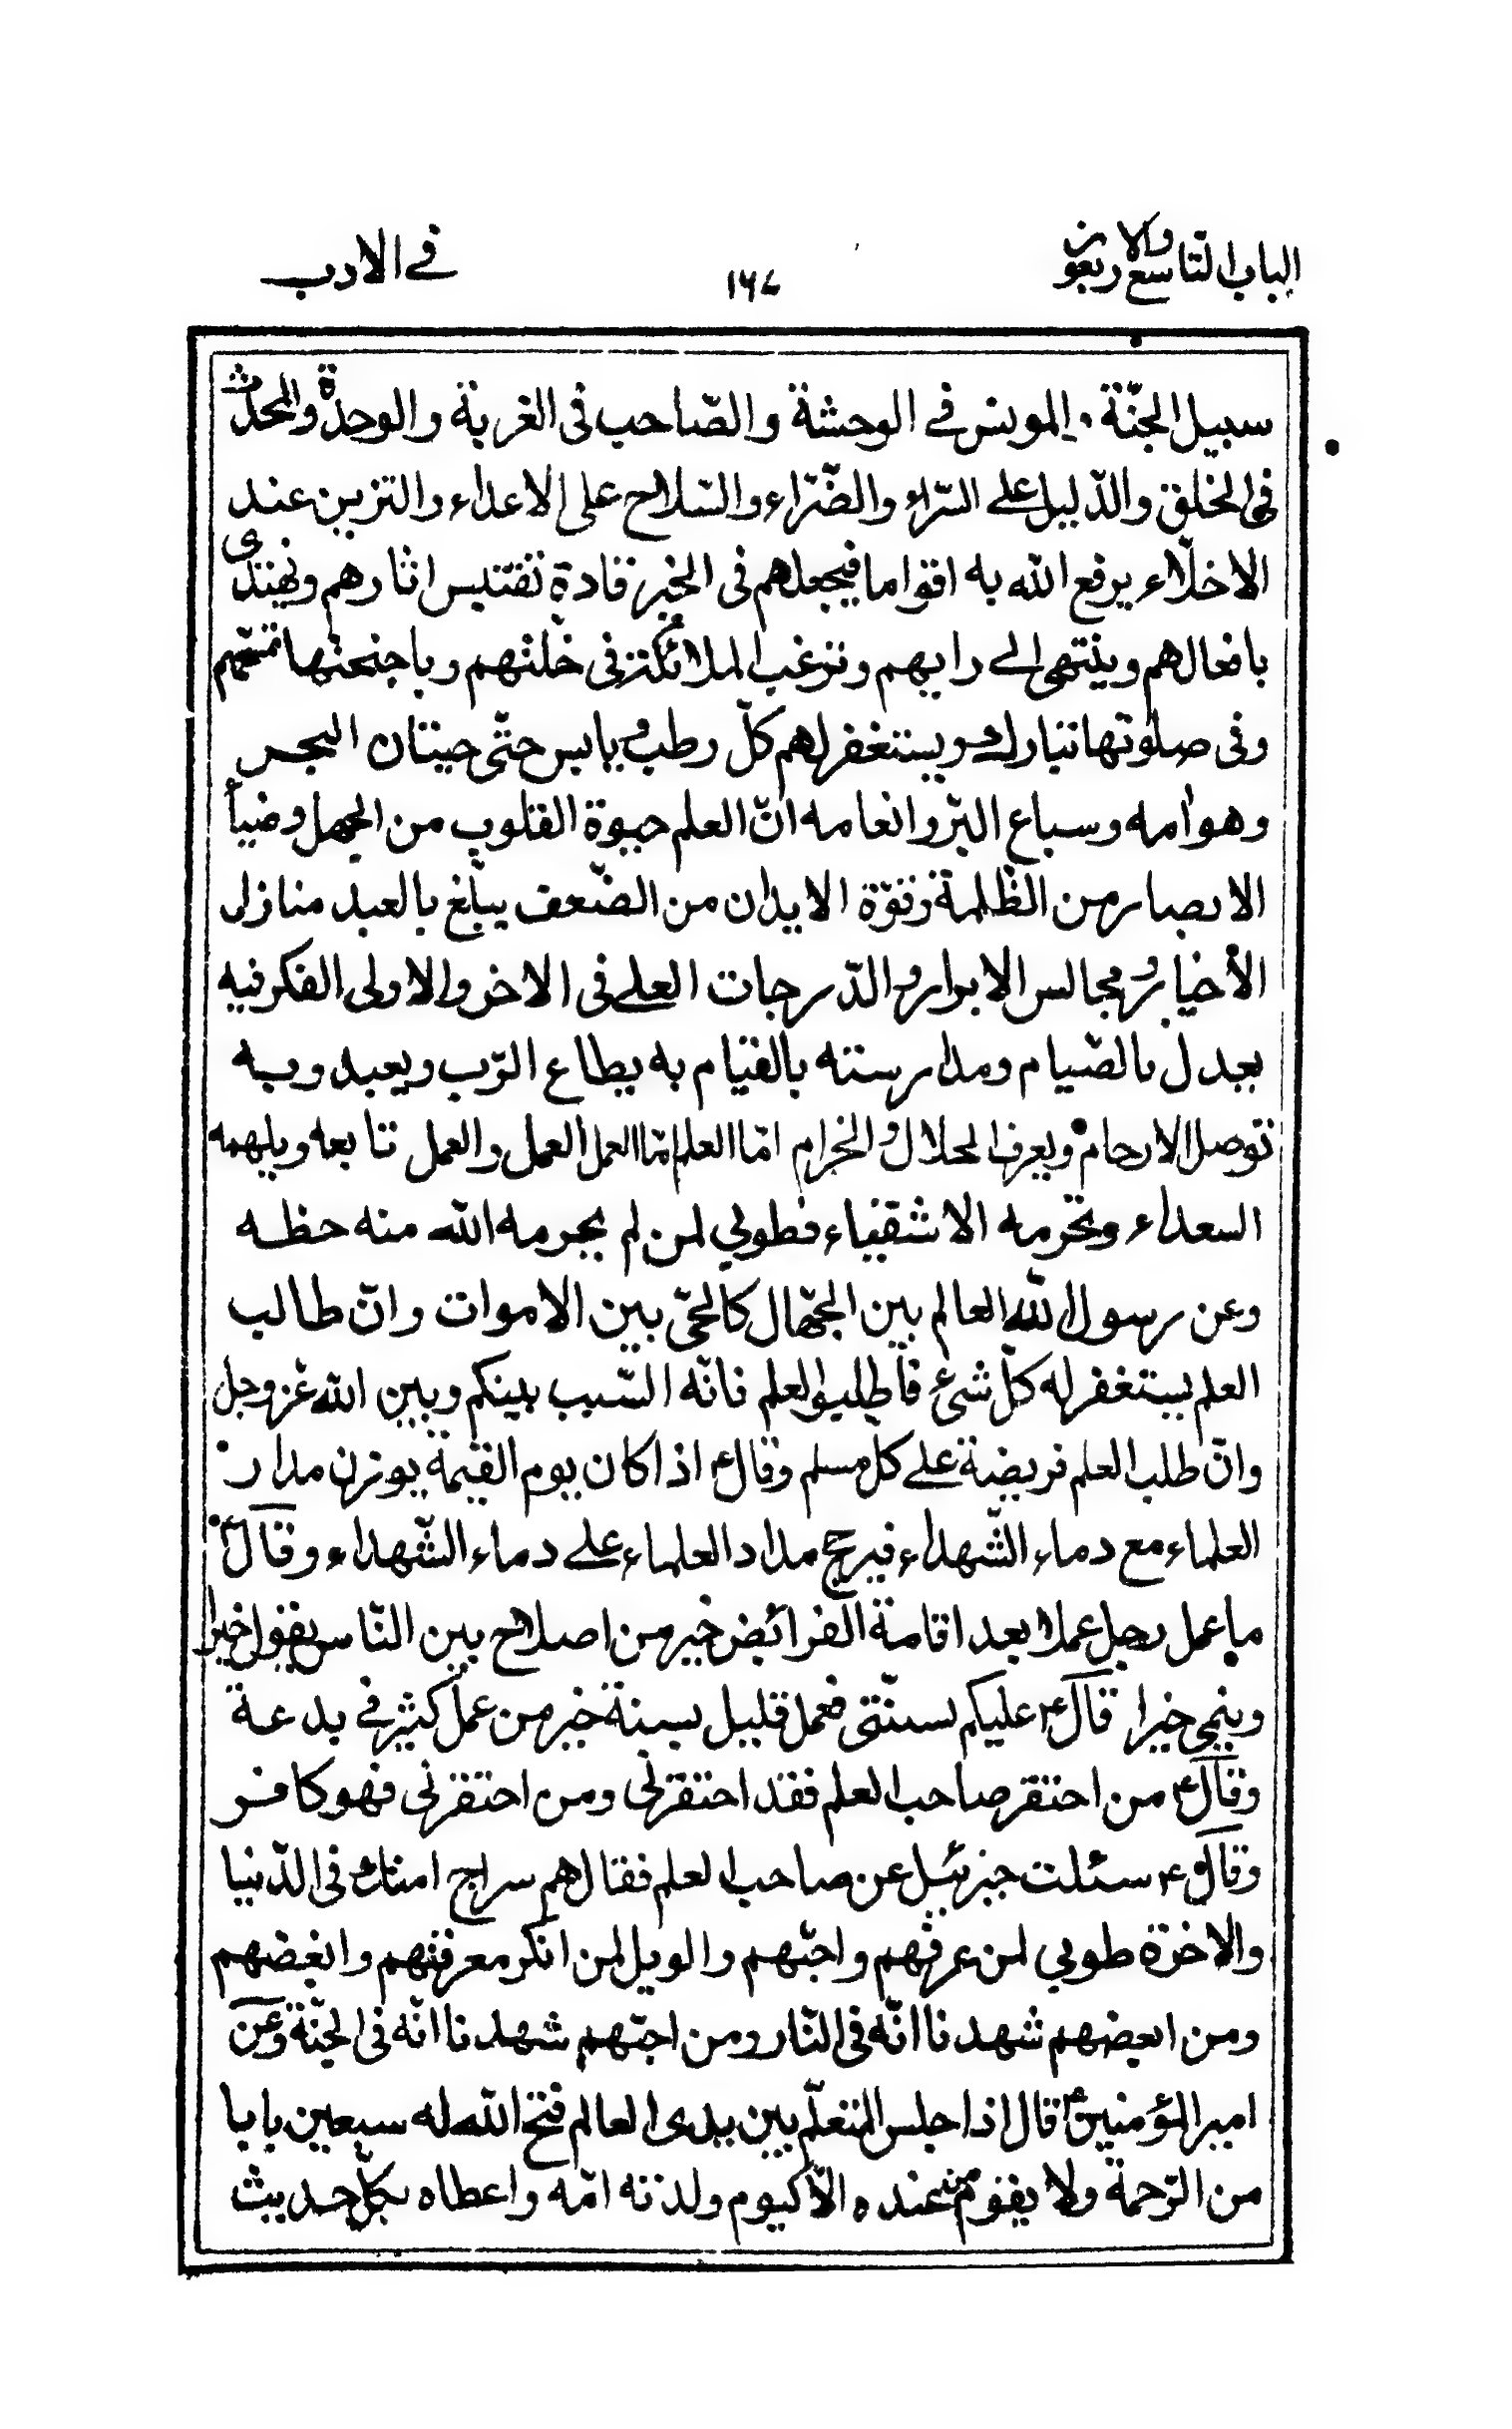 الباب التاسع والاربعون
١٦٧
في الادب
سبيل الجنّة والمونس في الوحشة والصّاحب فى الغربة والوحدة والمحدّث
فى الخلق والدّليل على السّراء والضّرّاء والسّلاح على الاعداء والتزين عند
الاخلّاء يرفع الله به اقواما فيجعلهم فى الخير قادة تقتبس اثارهم ويهتدى
بافعالهم وينتهى الى رايهم وترغب الملائكة فى خلّتهم وباجنحتها تمسّهم
وفى صلوتها تبارك ويستغفر لهم كلّ رطب ويابس حتّى حيتان البحر
وهوامه وسباع البرّ وانعامه انّ العلم حيوة القلوب من الجهل وضياء
الابصار من الظّلمة وقوّة الابدان من الضّعف يبلغ بالعبد منازل
الأخيار ومجالس الابرار والدّرجات العلى فى الاخر والاولى الفكر فيه
يعدل بالصّيام ومدارسته بالقيام به يطاع الرّب ويعبد وبه
توصل الارحام ويعرف الحلال والحرام امّا العلم امّا العمل العمل والعمل تابعه ويلهمه
السعداء وتحرمه الاشقياء فطوبي لمن لم يحرمه الله منه حظه
وعن رسول الله العالم بين الجهّال كالحىّ بين الاموات وانّ طالب
العلم يستغفر له كلّ شئ فاطلبوا العلم فانّه السّبب بينكم وبين الله عزوجل
وانّ طلب العلم فريضة على كل مسلم وقالؐ اذا كان يوم القيمة يوزن مداد
العلماء مع دماء الشّهداء فيرجح مداد العلماء على دماء الشّهداء وقالؐ
ما عمل رجل عملا بعد اقامة الفرائض خير من اصلاح بين النّاس يقول خيرا
وينمي خيرا قالؐ عليكم بسنّتى فعمل قليل بسنة خير من عمل كثير في بدعة
وقالؐ من احتقر صاحب العلم فقد احتقرنى ومن احتقرنى فهو كافر
وقالؐ سئلت جبرئيل عن صاحب العلم فقال هم سراج امتك فى الدّنيا
والاخرة طوبي لمن عرفهم واحبّهم والويل لمن انكر معرفتهم وابغضهم
ومن ابغضهم شهدنا انّه فى النّار ومن احبّهم شهدنا انّه فى الجنّة وعن
امير المؤمنينؑ قال اذا جلس المتعلّم بين يدى العالم فتح الله له سبعين بابا
من الرّحمة ولا يقوم من عنده الّا كيوم ولدته امّه واعطاه بكلّ حديث